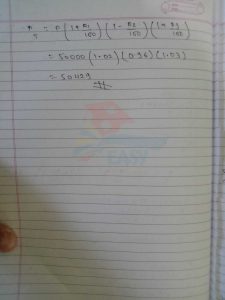 P = P (1 + R1/100) (1 - R2/100) (1 + R3/100)
5
= 50000 (1.02) (0.96) (1.03)
= 50429
EASY